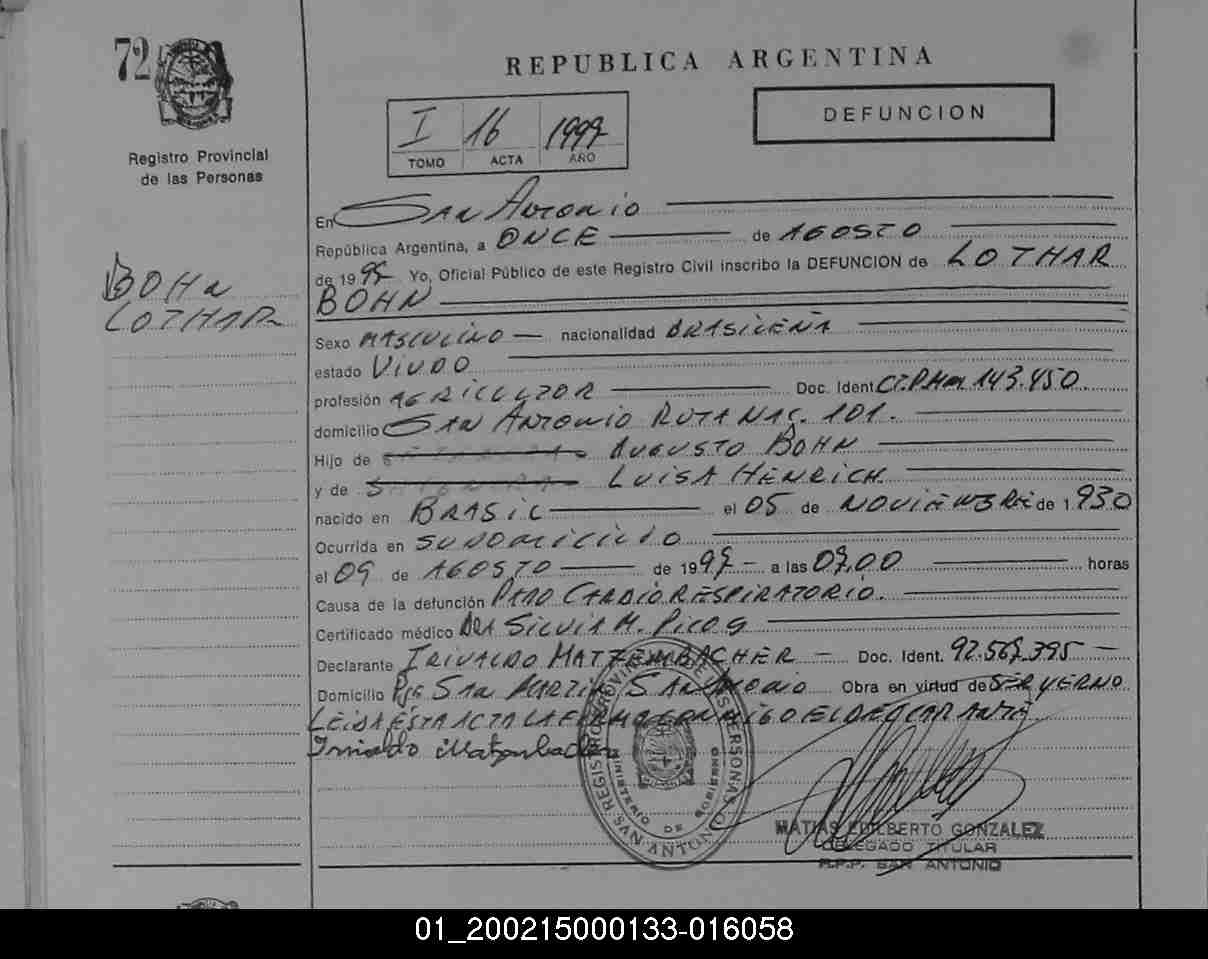 72
REPUBLICA ARGENTINA
I 16 1997
TOMO ACTA AÑO
DEFUNCION
Registro Provincial
de las Personas
BOHN
LOTHAR
En SAN ANTONIO
República Argentina, a ONCE de AGOSTO
de 1997 Yo, Oficial Público de este Registro Civil inscribo la DEFUNCION de LOTHAR
BOHN
Sexo MASCULINO nacionalidad BRASILEÑA
estado VIUDO
profesión AGRICULTOR Doc. Ident 143.450
domicilio SAN ANTONIO RUTA NAC. 101.
Hijo de AUGUSTO BOHN
y de LUISA HENRICH
nacido en BRASIL el 05 de NOVIEMBRE de 1.930
Ocurrida en SU DOMICILIO
el 09 de AGOSTO de 1997 a las 07,00 horas
Causa de la defunción PARO CARDIO RESPIRATORIO.
Certificado médico DRA SILVIA M.
Declarante IRIVALDO MATZEMBACHER Doc. Ident. 92.567.395
Domicilio Pje SAN MARTIN SAN ANTONIO Obra en virtud de SER YERNO
LEIDA ESTA ACTA LA FIRMO CONMIGO EL DECLARANTE
MATIAS EDILBERTO GONZALEZ
DELEGADO TITULAR
R.P.P. SAN ANTONIO
REGISTRO PROVINCIAL DE LAS PERSONAS
MINISTERIO DE GOBIERNO
SAN ANTONIO
01_200215000133-016058